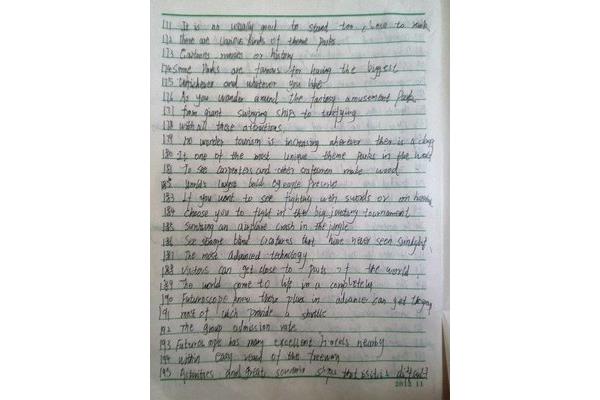 171 It is no usually good to stand too close to
172 There are various kinds of theme parks
173 Cartoons movies or history
174 Some Parks are famous for having the biggest
175 Whichever and whatever you like
176 As you wander around The fantasy amusement Park
177 from giant swinging ships to terrifying
178 with all these attractions,
179 no wonder tourism is increasing wherever there is a
180 It one of the most unique theme parks in the world
181 To see carpenters and other craftsmen make wood
182 World's largest bald eagle preserve
183 If you want to see fighting with swords or on
184 choose you to fight in the big jousting tournament
185 Surviving an airplane crash in the jungle
186 See strange blind creatures that have never seen sunlight
187 The most advanced technology
188 Visitors can get close to parts of the world
189 The world come to life in a completely
190 Futuroscope in advance can get
191 most of which provide a shuttle
192 The group admission rate
193 Futuroscope has many excellent hotels nearby
194 within easy reach of the freeway
195 Activities and great souvenir shops that
2012 11